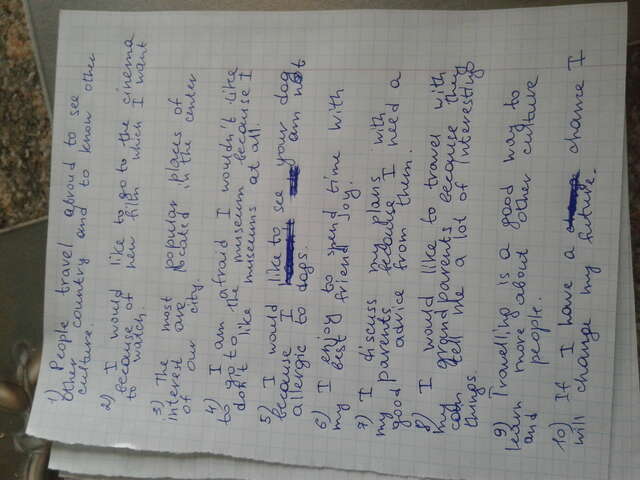 1) People travel abroud to see
other country and to know other
culture.
2) I would like to go to the cinema
because of new film which I want
to watch.
3) The most popular places of
interest are located in the center
of our city.
4) I am afraid I wouldn't like
to go to the museum because I
don't like museums at all.
5) I would like to see your dog
because I am not
allergic to dogs.
6) I enjoy to spend time with
my best friend Joy.
7) I discuss my plans with
my parents because I need a
good advice from them.
8) I would like to travel with
my grandparents because they
can tell me a lot of interesting
things.
9) Travelling is a good way to
learn more about other culture
and people.
10) If I have a chance I
will change my future.